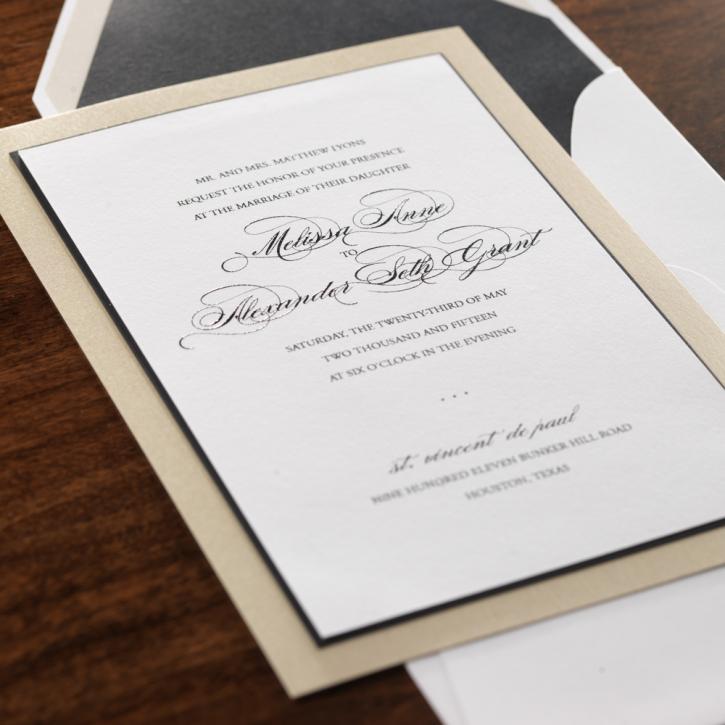 MR. AND MRS. MATTHEW LYONS
REQUEST THE HONOR OF YOUR PRESENCE
AT THE MARRIAGE OF THEIR DAUGHTER
Melissa Anne
TO
Alexander Seth Grant
SATURDAY, THE TWENTY-THIRD OF MAY
TWO THOUSAND AND FIFTEEN
AT SIX O'CLOCK IN THE EVENING
...
st. vincent de paul
NINE HUNDRED ELEVEN BUNKER HILL ROAD
HOUSTON, TEXAS